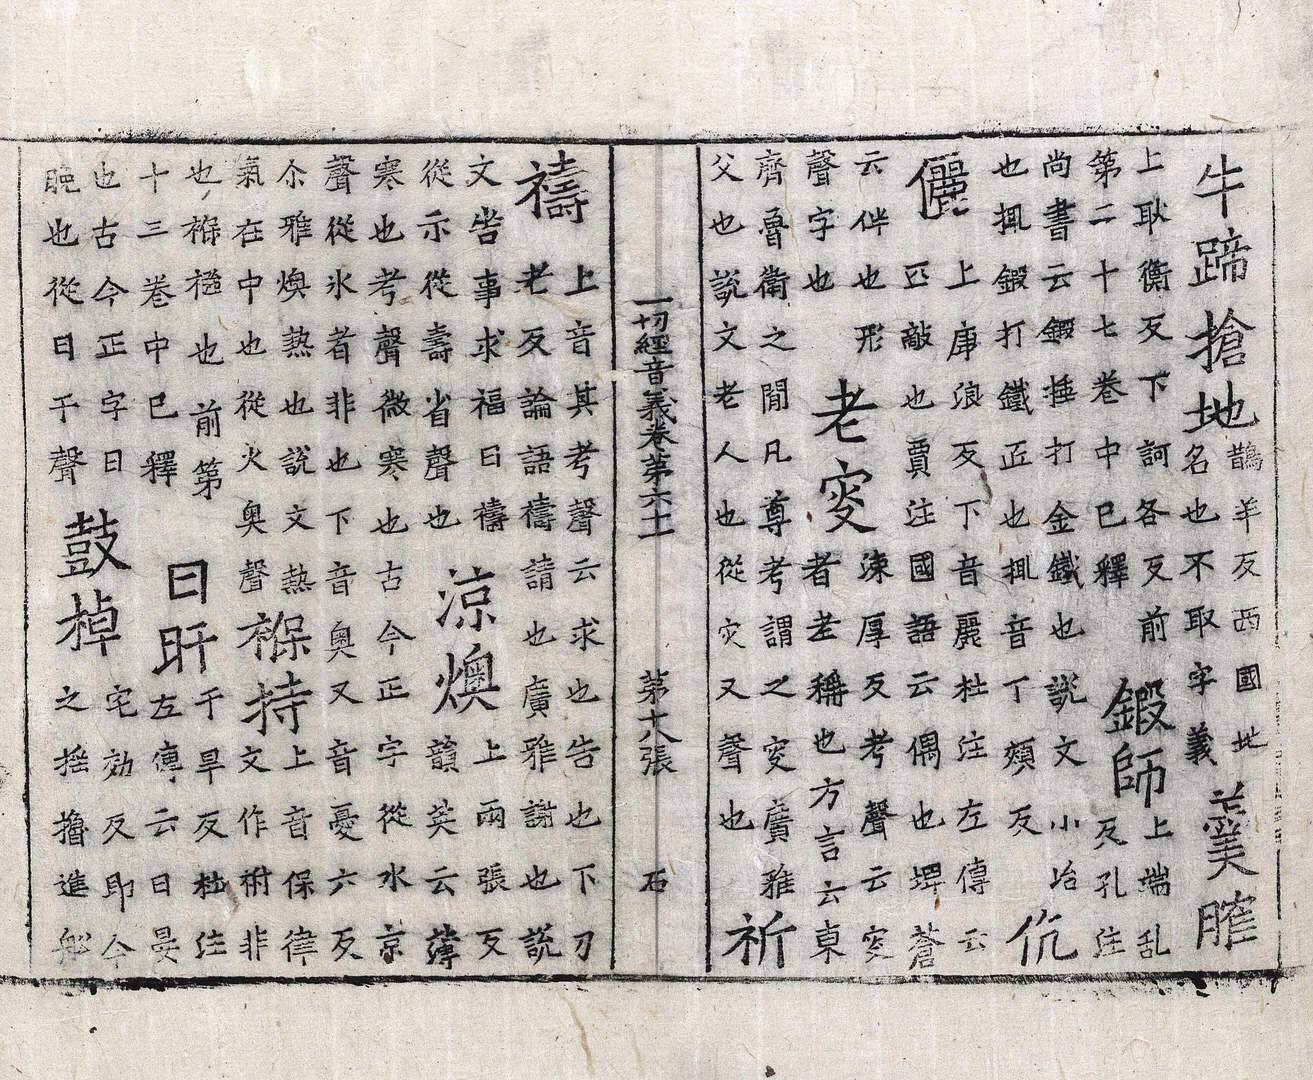 牛蹄搶地鵲羊反西國地名也不取字義羹臛
上耿衡反下訶各反前第二十七卷中已釋鍛師上端乱反孔注
尚書云鍛捶打金鐵也說文小冶也掫鍛打鐵匠也掫音丁頰反伉
儷上庚浪反下音麗杜注左傳云匹敵也賈注國語云偶也埤蒼
云伴也形聲字也老叜涑厚反考聲云叜者老稱也方言云東
齊魯衛之間凡尊考謂之叜廣雅父也說文老人也從灾又聲也祈
一切經音義卷第六十一 第十八張 石
禱上音其考聲云求也告也下刀老反論語禱請也廣雅謝也說
文告事求福曰禱從示從壽省聲也涼燠上兩張反韻英云薄
寒也考聲微寒也古今正字從水京聲從氷者非也下音奧又音憂六反
尒雅燠熱也說文熱氣在中也從火奥聲褓持上音保律文作非
也褓襁也前第十三卷中已釋日旰干旱反杜注左傳云日晏
也古今正字日晚也從日干聲鼓棹宅効反即今之揺擼進舩